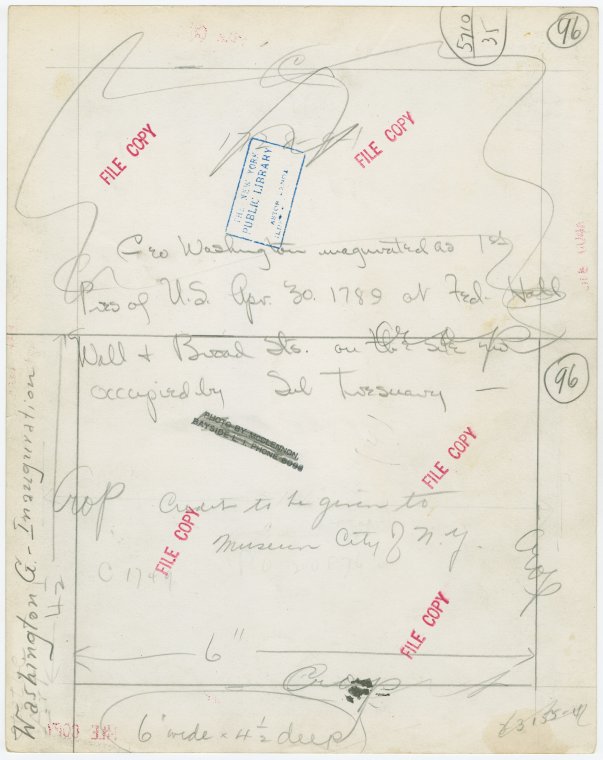 5710
35
96
1789
FILE COPY
FILE COPY
THE NEW YORK
PUBLIC LIBRARY
ASTOR, LENOX
Geo Washington inaugurated as 1st
Pres of U.S. Apr. 30. 1789 at Fed. Hall
Wall & Broad Sts. on the site now
occupied by Sub Treasuary —
96
PHOTO BY MCCLERNON,
BAYSIDE L. I. PHONE
FILE COPY
Crop
Credit to be given to
Museum City of N.Y.
FILE COPY
Crop
Washington G. - Inauguration
42
FILE COPY
6"
Crop
6" wide x 4½ deep
FILE COPY